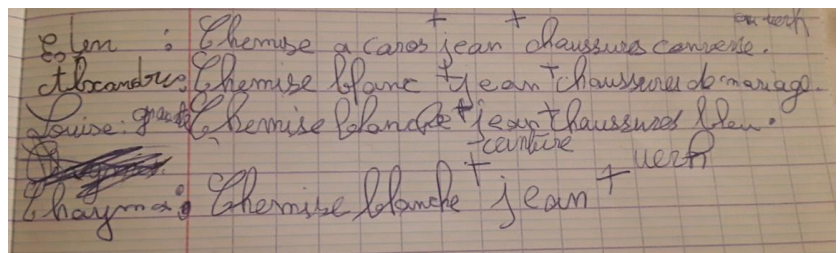 en verh
Eslen : Chemise a caros + jean + chaussures converse.
Alxandre : Chemise blanc + jean + chaussures de mariage.
Louise : grande Chemise blanche + jean + chaussures bleu.
+ ceinture
Chayma : Chemise blanche + jean + verh